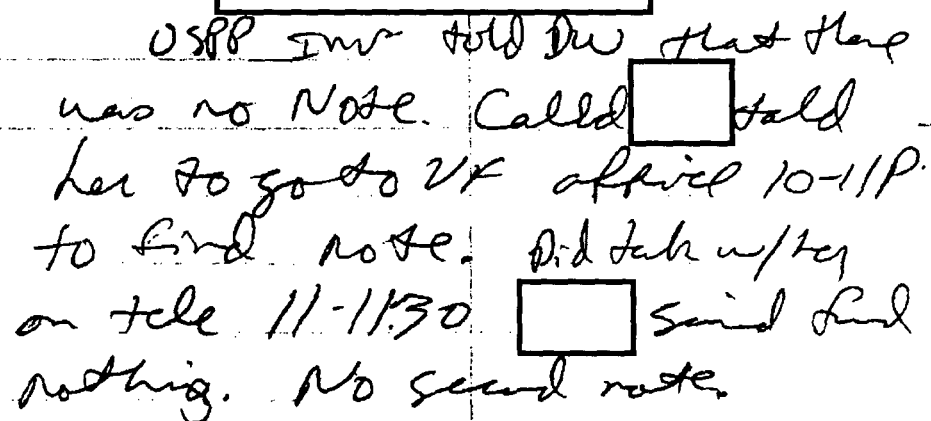 USPP Inv told DW that there
was no Note. Called told
her to go to VF office 10-11P.
to find note. Did talk w/ her
on tele 11-11:30 said find
nothing. No second note.